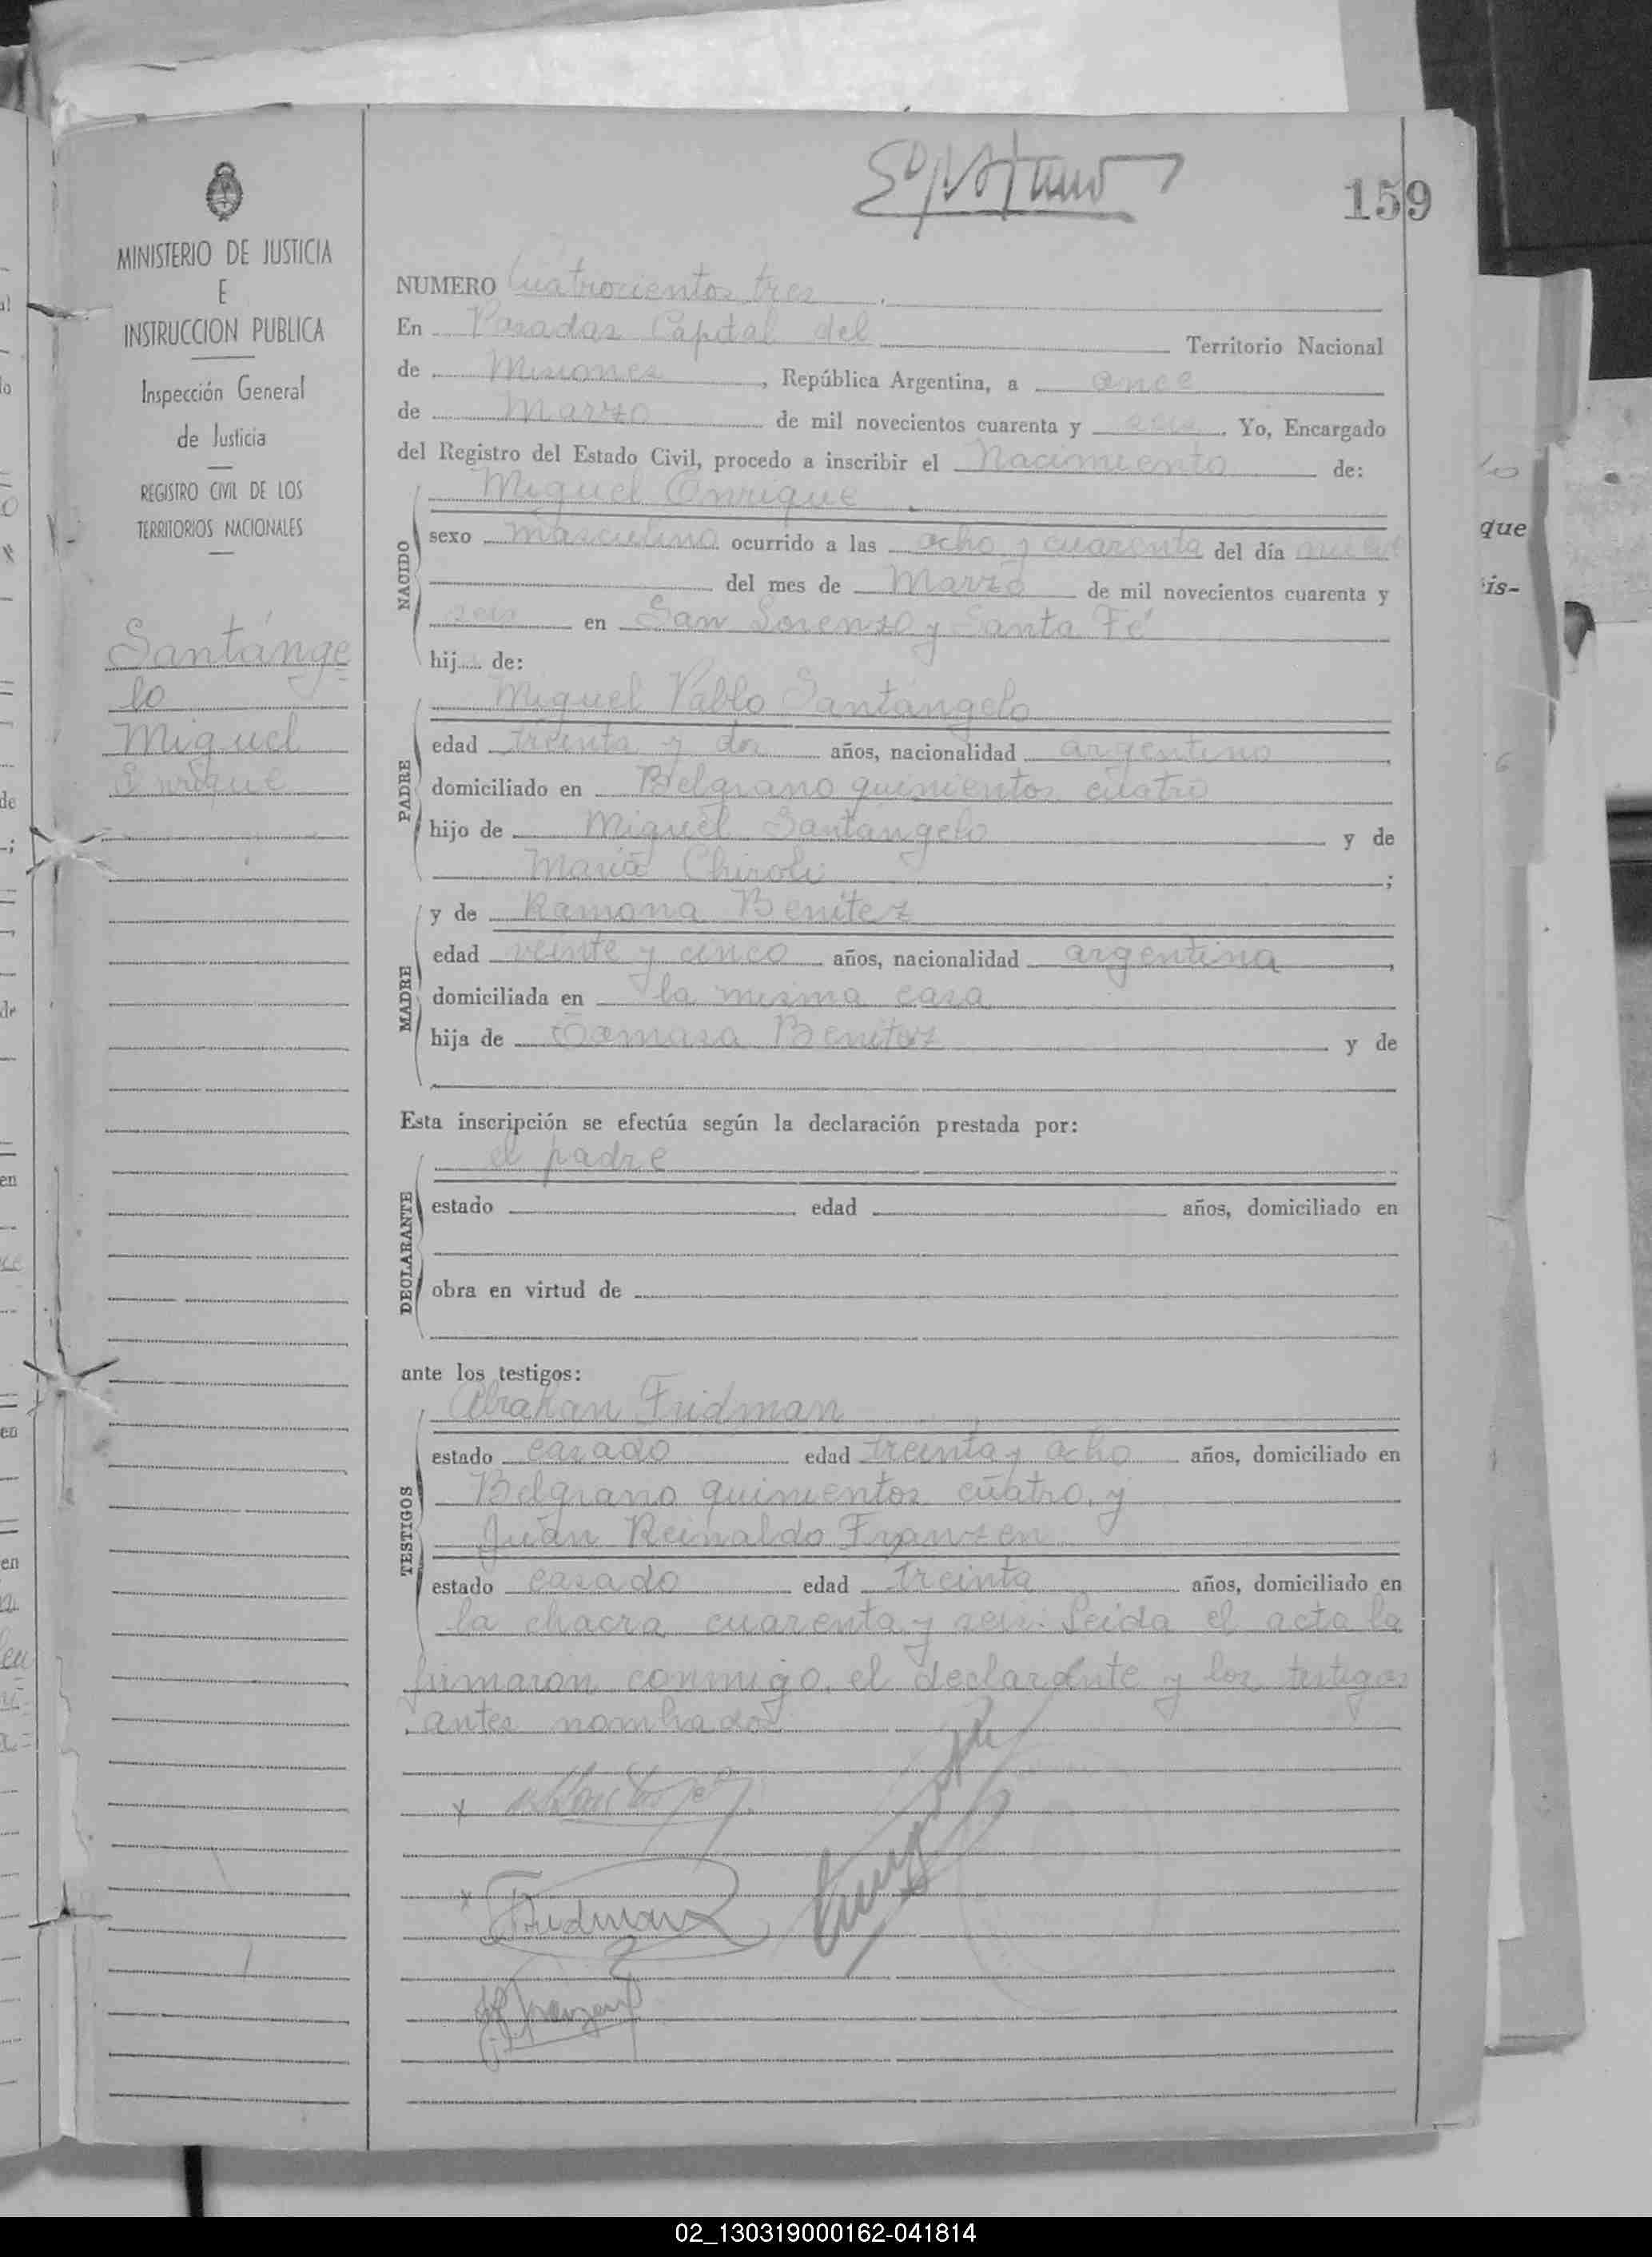 159
MINISTERIO DE JUSTICIA
E
INSTRUCCION PUBLICA
Inspección General
de Justicia
REGISTRO CIVIL DE LOS
TERRITORIOS NACIONALES
Santánge-
lo
Miguel
Enrique
NUMERO Cuatrocientos tres
En Posadas Capital del Territorio Nacional
de Misiones, República Argentina, a once
de Marzo de mil novecientos cuarenta y seis. Yo, Encargado
del Registro del Estado Civil, procedo a inscribir el Nacimiento de:
NACIDO
Miguel Enrique
sexo masculino ocurrido a las ocho y cuarenta del día nueve
del mes de Marzo de mil novecientos cuarenta y
seis en San Lorenzo y Santa Fé
hij de:
PADRE
Miguel Pablo Santángelo
edad treinta y dos años, nacionalidad argentino
domiciliado en Belgrano quinientos cuatro
hijo de Miguel Santángelo y de
María Chiroli ;
MADRE
y de Ramona Benítez
edad veinte y cinco años, nacionalidad argentina,
domiciliada en la misma casa
hija de Tomasa Benítez y de
Esta inscripción se efectúa según la declaración prestada por:
DECLARANTE
el padre
estado edad años, domiciliado en
obra en virtud de
ante los testigos:
TESTIGOS
Abrahan Fridman
estado casado edad treinta y ocho años, domiciliado en
Belgrano quinientos cuatro, y
Juan Reinaldo Franzen
estado casado edad treinta años, domiciliado en
la chacra cuarenta y seis. Leída el acta la
firmaron conmigo, el declarante y los testigos
antes nombrados
x
x Fridman
J. Franzen
que
is-
02_130319000162-041814